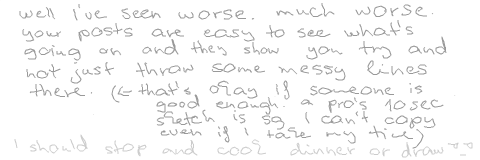 well i've seen worse. much worse.
your posts are easy to see what's
going on and they show you try and
not just throw some messy lines
there. (← that's okay if someone is
good enough. a pro's 10sec
sketch is sg I can't copy
even if I take my time)
I should stop and cook dinner or draw